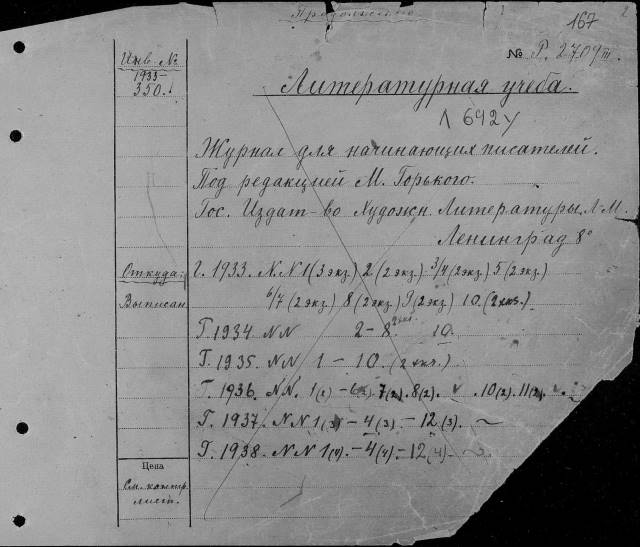 Продолжение
167
№ Р. 2709 III.
Инв №
1933
350.
Литературная учеба.
Л 642 у
Журнал для начинающих писателей.
Под редакцией М. Горького.
Гос. Издат-во Художн. Литературы, Л-М.
Ленинград 8°
Откуда:
Выписан
г. 1933. N.N 1 (3 экз) 2 (2 экз) 3/4 (2 экз) 5 (2 экз)
6/7 (2 экз) 8 (2 экз) 9 (2 экз) 10. (2 экз.)
Г. 1934 NN 2 – 8 2 экз. 10.
Г. 1935. NN 1 – 10. (2 экз.)
Г. 1936. NN. 7(2). 8(2). 10(2). 11(2).
Г. 1937. NN 1(3) – 4(3). – 12(3).
Г. 1938. NN 1(4). – 4(4). – 12(4).
Цена
См. контр.
лист.